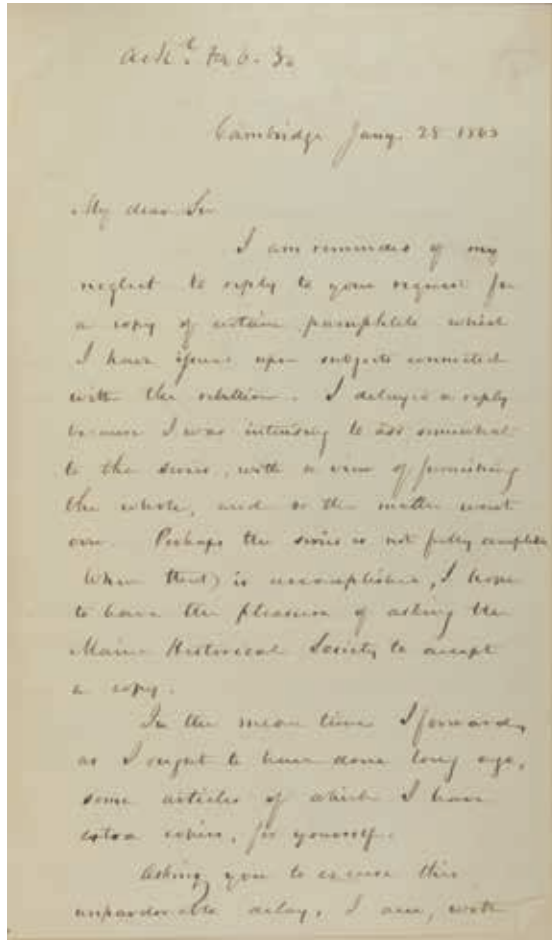 Ack.d Feb 6. 30
Cambridge Jany. 28 1863
My dear Sir
I am reminded of my
neglect to reply to your request for
a copy of certain pamphlets which
I have issued upon subjects connected
with the rebellion. I delayed a reply
because I was intending to add somewhat
to the series, with a view of furnishing
the whole, and so the matter went
over. Perhaps the series is not fully complete
When that is accomplished, I hope
to have the pleasure of asking the
Maine Historical Society to accept
a copy.
In the mean time I forward,
as I ought to have done long ago,
some articles of which I have
extra copies, for yourself.
Asking you to excuse this
unpardonable delay, I am, with